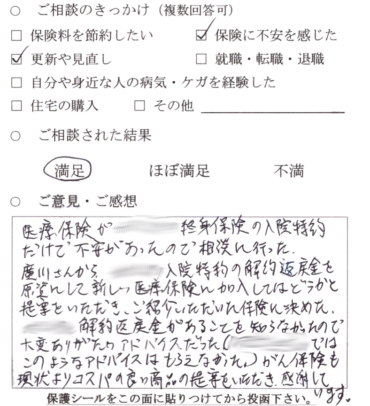 ○ ご相談のきっかけ（複数回答可）
□ 保険料を節約したい ☑ 保険に不安を感じた
☑ 更新や見直し □ 就職・転職・退職
□ 自分や身近な人の病気・ケガを経験した
□ 住宅の購入 □ その他
○ ご相談された結果
満足 ほぼ満足 不満
○ ご意見・ご感想
医療保険が 終身保険の入院特約
だけで不安があったので相談に行った。
さんから、 入院特約の解約返戻金を
原資にして新しい医療保険に加入してはどうかと
提案をいただき、ご紹介いただいた保険に決めた。
解約返戻金があることを知らなかったので
大変ありがたいアドバイスだった（ では
このようなアドバイスはもらえなかった。）がん保険も
現状よりコスパの良い商品の提案をいただき、感謝して
います。
保護シールをこの面に貼りつけてから投函下さい。